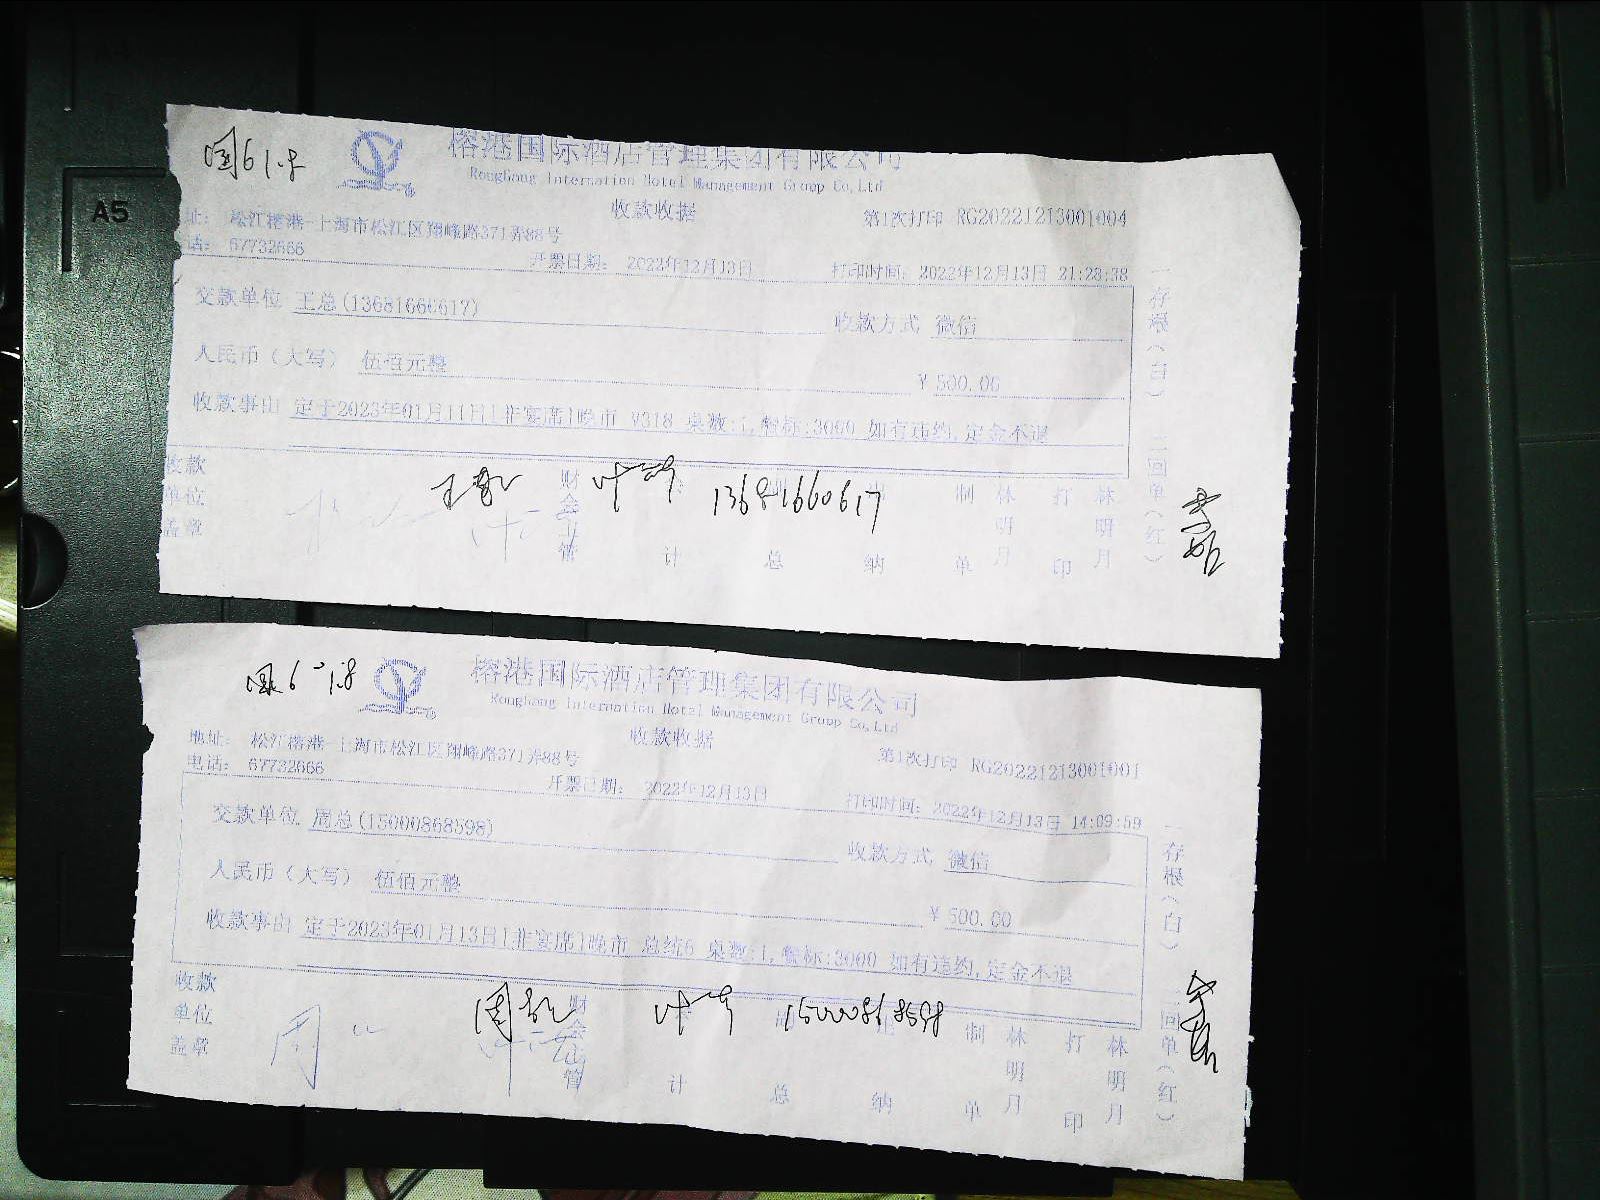 A5
榕港国际酒店管理集团有限公司
Ronghang Internation Hotel Management Group Co,Ltd
收款收据
第1次打印 RG20221213001004
址: 松江榕港-上海市松江区翔峰路371弄88号
话: 67732666
开票日期: 2022年12月13日
打印时间: 2022年12月13日 21:28:38
交款单位 王总(13681660617)
收款方式 微信
人民币(大写) 伍佰元整
¥ 500.00
收款事由 定于2023年01月11日[非宴席]晚市 V318 桌数:1,餐标:3000 如有违约,定金不退
收款单位盖章
财会主管
计
总
出纳
制单 林明月
打印 林明月
13681660617
一存根(白) 二回单(红)
榕港国际酒店管理集团有限公司
Ronghang Internation Hotel Management Group Co,Ltd
收款收据
第1次打印 RG20221213001001
地址: 松江榕港-上海市松江区翔峰路371弄88号
电话: 67732666
开票日期: 2022年12月13日
打印时间: 2022年12月13日 14:09:59
交款单位 周总(15000868598)
收款方式 微信
人民币(大写) 伍佰元整
¥ 500.00
收款事由 定于2023年01月13日[非宴席]晚市 总统6 桌数:1,餐标:3000 如有违约,定金不退
收款单位盖章
财会主管
计
总
出纳
制单 林明月
打印 林明月
15000868598
一存根(白) 二回单(红)